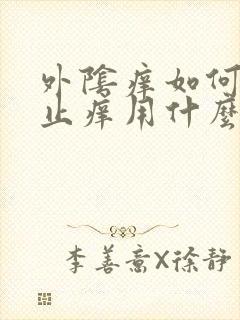 外陰痒如何
止痒用什麼
李善喬X徐静